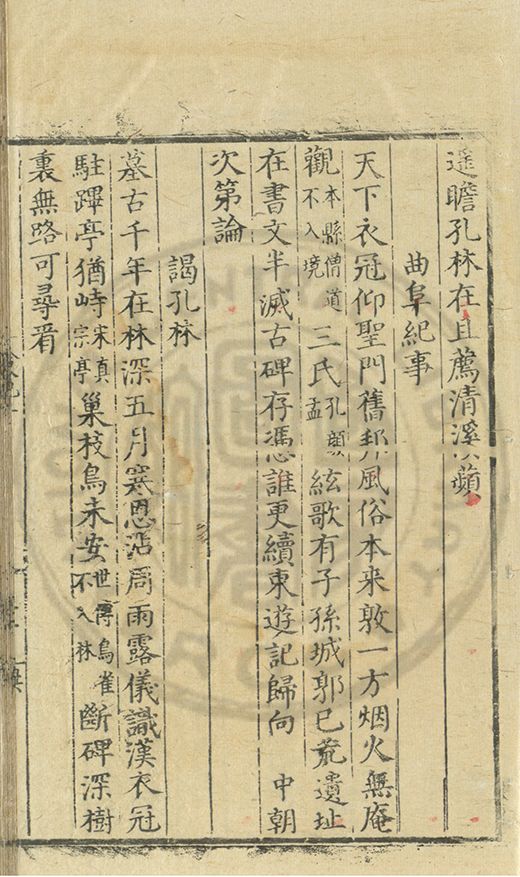 遥瞻孔林在且薦清溪蘋
曲阜紀事
天下衣冠仰聖門舊邦風俗本来敦一方烟火無庵
觀本縣僧道不入境三氏孔顔孟絃歌有子孫城郭已荒遺址
在書文半滅古碑存馮誰更續東遊記歸向 中朝
次第論
謁孔林
墓古千年在林深五月寒恩沾周雨露儀識漢衣冠
駐蹕亭猶峙宋真宗亭巢枝鳥未安世傳鳥雀不入林斷碑深樹
裏無路可尋看